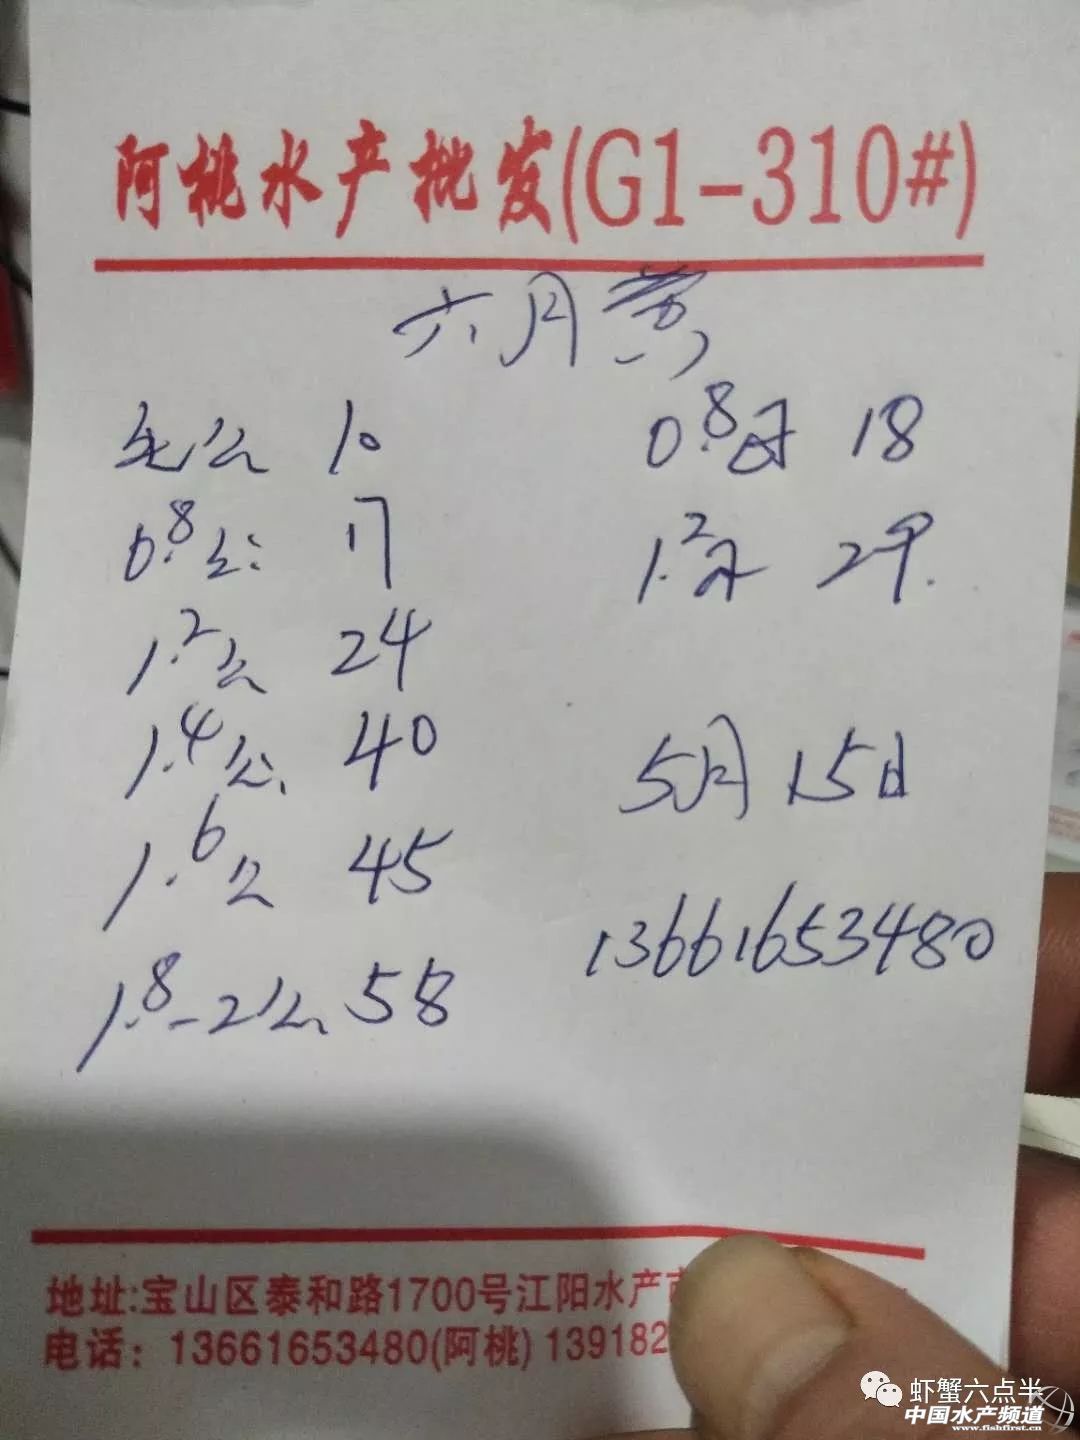 阿桃水产批发(G1-310#)
六月黄
死公 10
0.8公 17
1.2公 24
1.4公 40
1.6公 45
1.8-2公 58
0.8母 18
1.2母 29
5月15日
13661653480
地址:宝山区泰和路1700号江阳水产
电话：13661653480(阿桃) 139182
虾蟹六点半
中国水产频道
www.fishfirst.cn